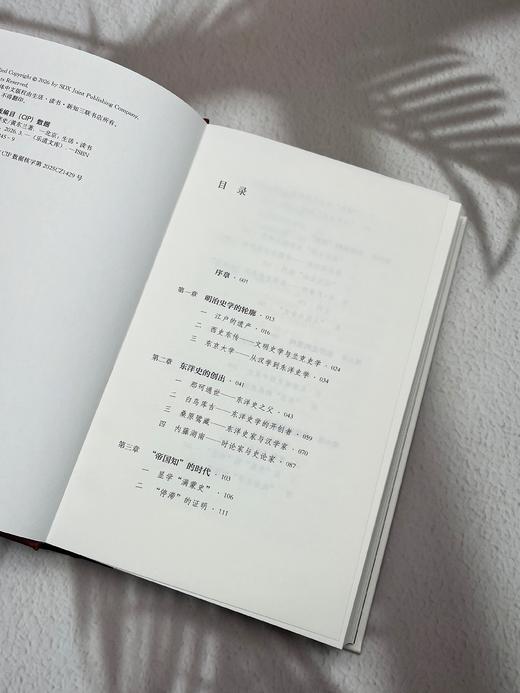 ied Copyright © 2026 by SDX Joint Publishing Company.
hts Reserved.
体中文版权由生活·读书·新知三联书店所有。
不得翻印。
编目（CIP）数据
史/黄东兰著. —北京：生活·读书
, 2026.3. —（乐道文库）. —ISBN
45-9
CIP 数据核字第 2025CZ1429 号
目 录
序章 · 001
第一章 明治史学的轮廓 · 013
一 江户的遗产 · 016
二 西史东传——文明史学与兰克史学 · 024
三 东京大学——从汉学到东洋史学 · 034
第二章 东洋史的创出 · 041
一 那珂通世——东洋史之父 · 043
二 白鸟库吉——东洋史学的开创者 · 059
三 桑原骘藏——东洋史家与汉学家 · 070
四 内藤湖南——时论家与史论家 · 087
第三章 “帝国知”的时代 · 103
一 显学“满蒙史” · 106
二 “停滞”的证明 · 111